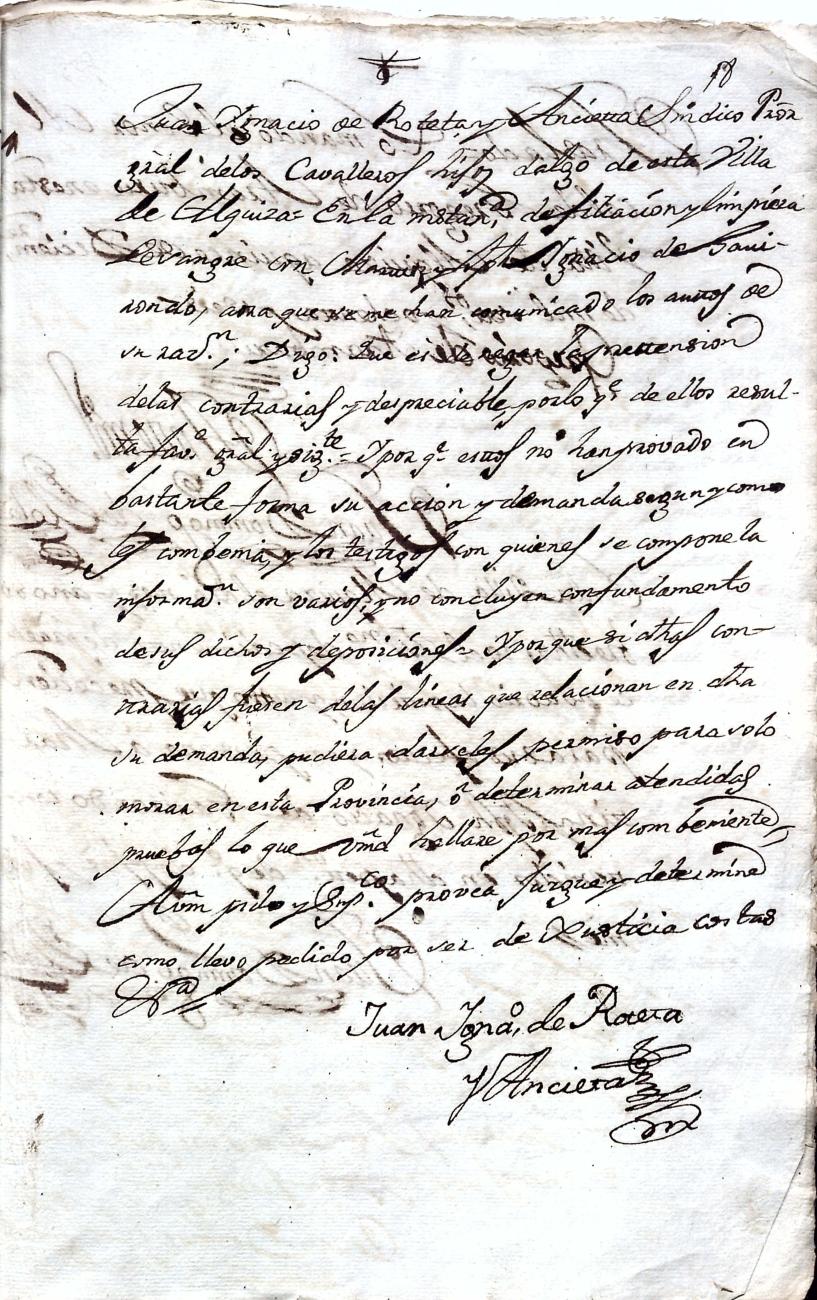 18
Juan Ygnacio de Roteta y Ancieta Sindico Pror
gral delos Cavalleros hijos dalgo de esta Villa
de Elquiza = En la instana, de filiacion y limpieza
de sangre con Ygnacio de Saui-
rondo, que se me han comunicado los autos de
su razn; Digo: Que es de la prettension
delas contrarias y despreciable porlo qe de ellos resul-
ta fave gral y sigte = Y por qe estos no han provado en
bastante forma su accion y demanda segun y como
les combenia, y los testigos con quienes se compone la
informan son varios, y no concluyen con fundamento
desus dichos y deposiciones = Y porque si dhas con-
trarias fuesen delas lineas que relacionan en dha
su demanda, pudiera darseles permiso para solo
morar en esta Provincia, ó determinar atendidas
pruebas lo que Vmd hallare por mas combeniente =
AVm pido y Supco provea Juzgue y determine
como llevo pedido por ser de Justicia costas
&a
Juan Ignao, de Roteta
y Ancieta